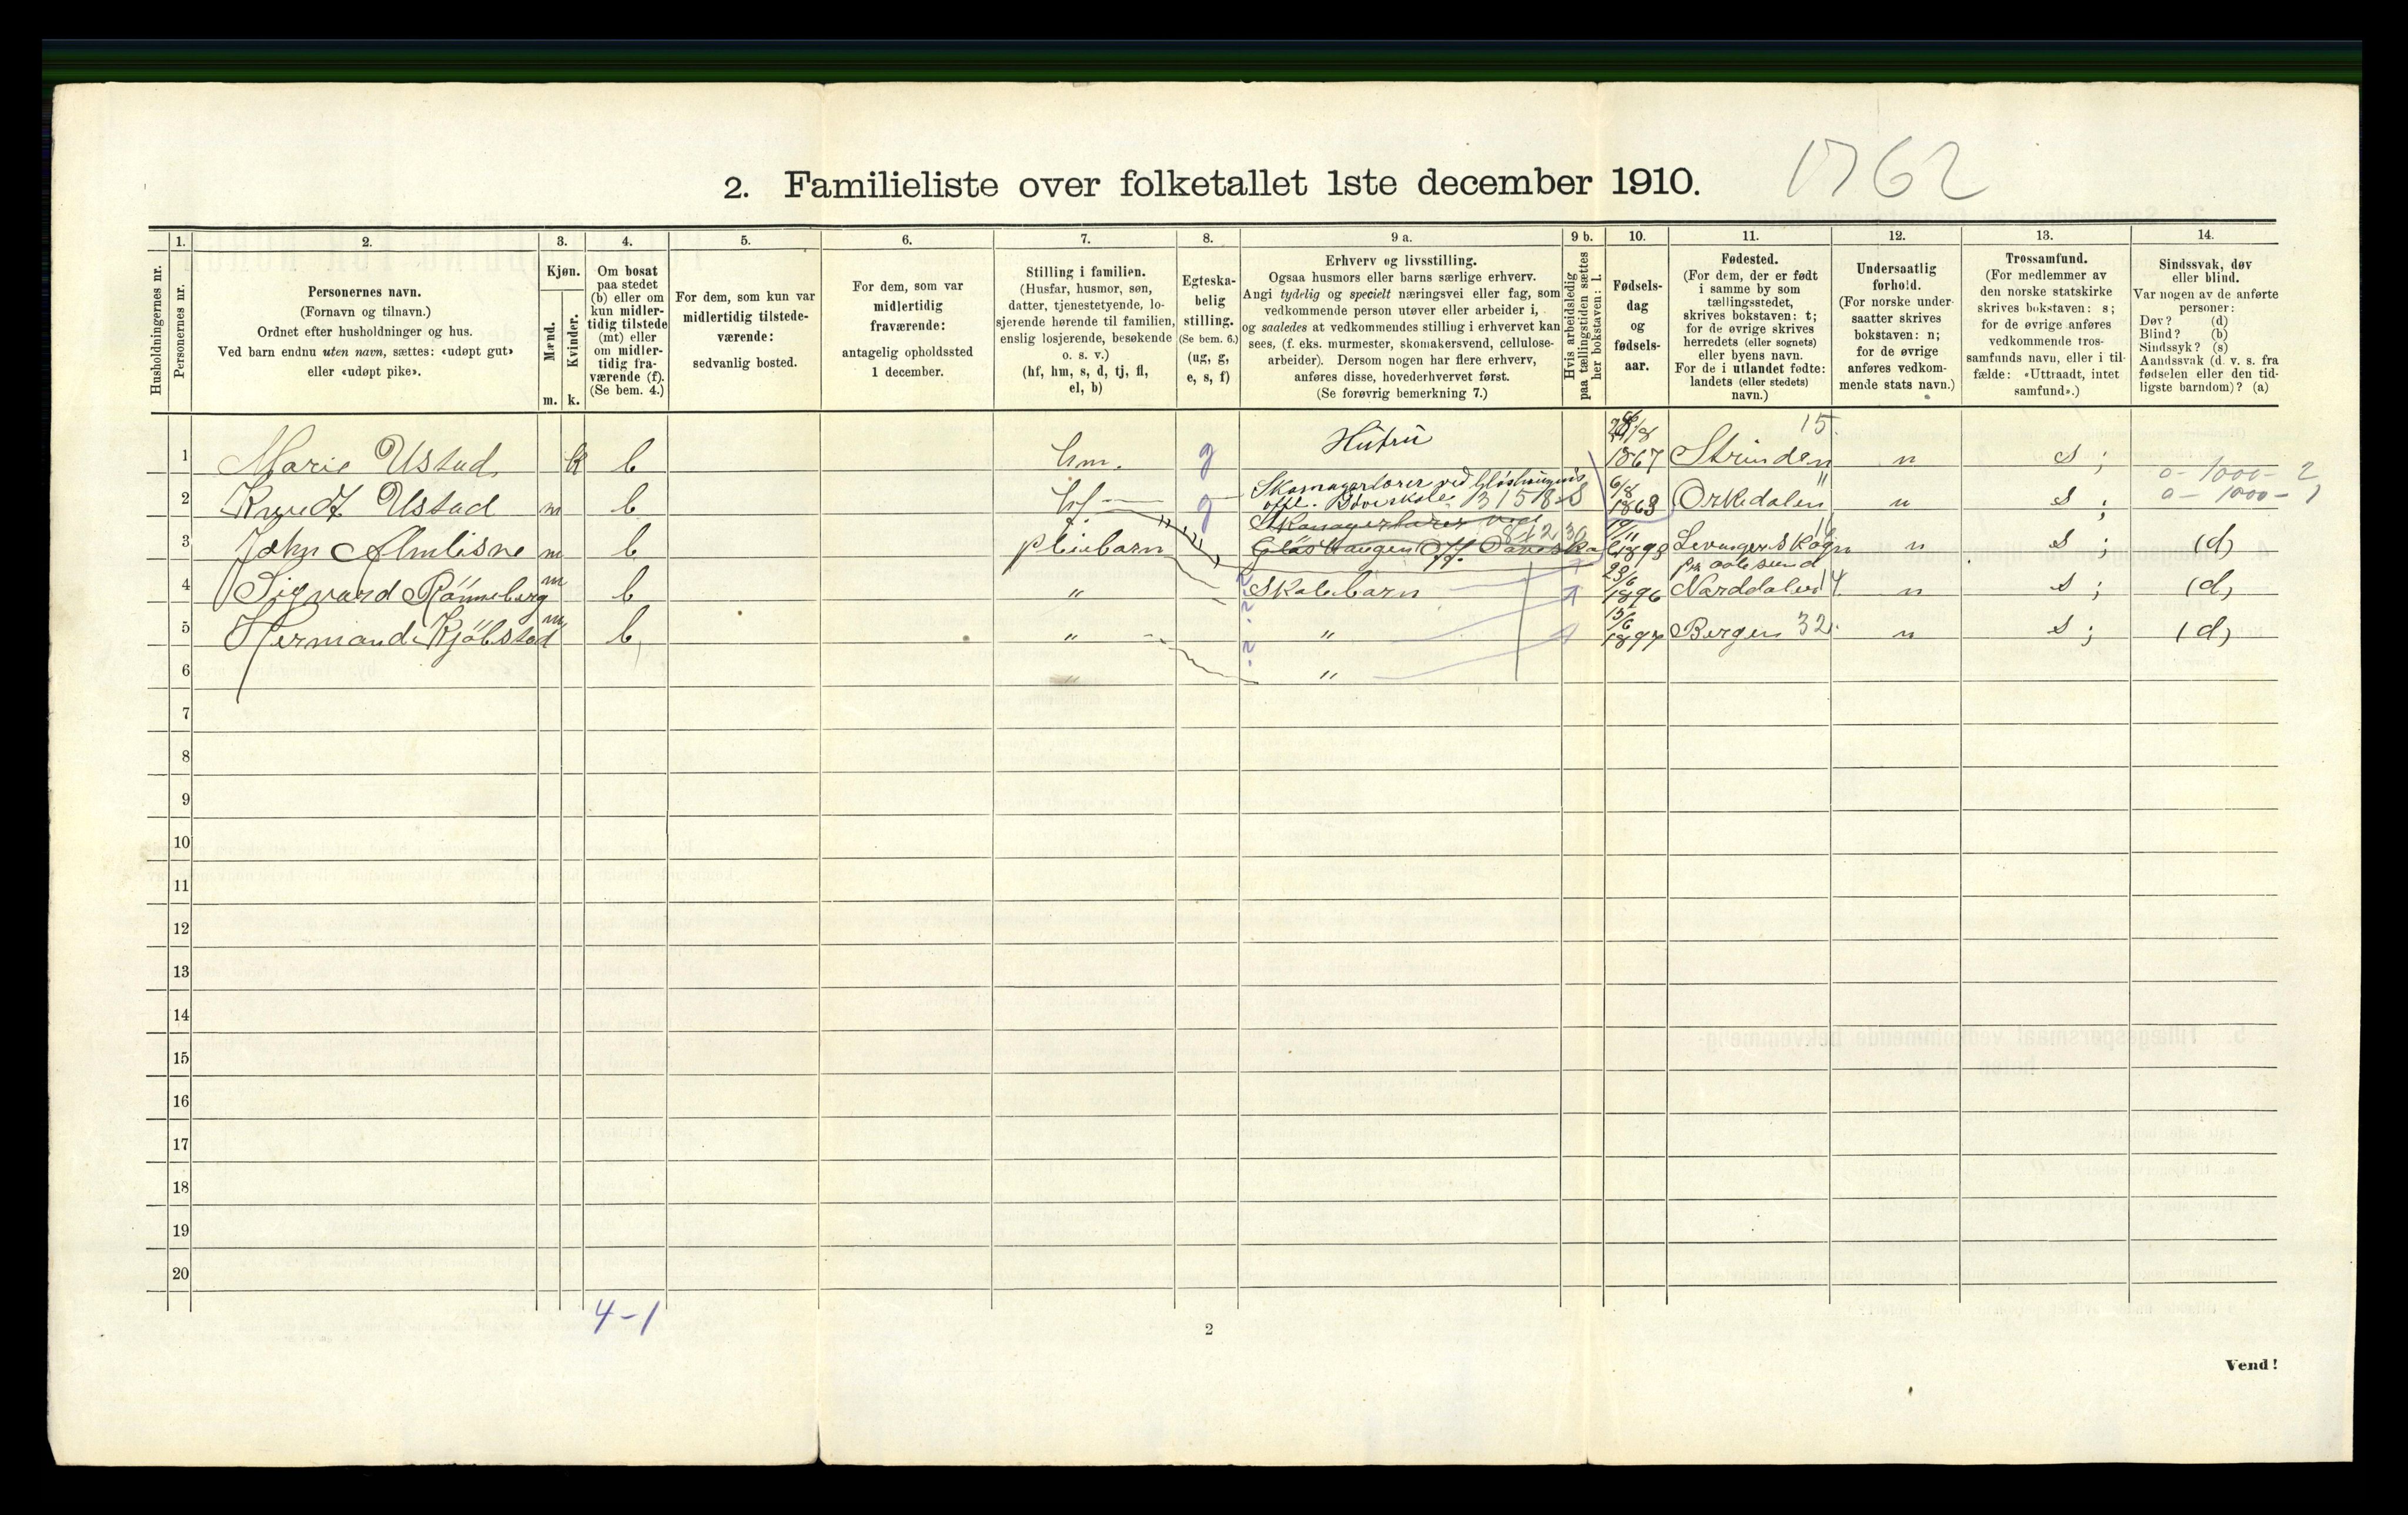 1762
2. Familieliste over folketallet 1ste december 1910.
1. 2. 3. 4. 5. 6. 7. 8. 9 a. 9 b. 10. 11. 12. 13. 14.
Husholdningernes nr.
Personernes nr.
Personernes navn.
(Fornavn og tilnavn.)
Ordnet efter husholdninger og hus.
Ved barn endnu uten navn, sættes: «udøpt gut»
eller «udøpt pike».
Kjøn.
Mænd.
Kvinder.
m. k.
Om bosat
paa stedet
(b) eller om
kun midler-
tidig tilstede
(mt) eller
om midler-
tidig fra-
værende (f).
(Se bem. 4.)
For dem, som kun var
midlertidig tilstede-
værende:
sedvanlig bosted.
For dem, som var
midlertidig
fraværende:
antagelig opholdssted
1 december.
Stilling i familien.
(Husfar, husmor, søn,
datter, tjenestetyende, lo-
sjerende hørende til familien,
enslig losjerende, besøkende
o. s. v.)
(hf, hm, s, d, tj, fl,
el, b)
Egteska-
belig
stilling.
(Se bem. 6.)
(ug, g,
e, s, f)
Erhverv og livsstilling.
Ogsaa husmors eller barns særlige erhverv.
Angi tydelig og specielt næringsvei eller fag, som
vedkommende person utøver eller arbeider i,
og saaledes at vedkommendes stilling i erhvervet kan
sees, (f. eks. murmester, skomakersvend, cellulose-
arbeider). Dersom nogen har flere erhverv,
anføres disse, hovederhvervet først.
(Se forøvrig bemerkning 7.)
Hvis arbeidsledig
paa tællingstiden sættes
her bokstaven: l.
Fødsels-
dag
og
fødsels-
aar.
Fødested.
(For dem, der er født
i samme by som
tællingsstedet,
skrives bokstaven: t;
for de øvrige skrives
herredets (eller sognets)
eller byens navn.
For de i utlandet fødte:
landets (eller stedets)
navn.)
Undersaatlig
forhold.
(For norske under-
saatter skrives
bokstaven: n;
for de øvrige
anføres vedkom-
mende stats navn.)
Trossamfund.
(For medlemmer av
den norske statskirke
skrives bokstaven: s;
for de øvrige anføres
vedkommende tros-
samfunds navn, eller i til-
fælde: «Uttraadt, intet
samfund».)
Sindssvak, døv
eller blind.
Var nogen av de anførte
personer:
Døv? (d)
Blind? (b)
Sindssyk? (s)
Aandssvak (d. v. s. fra
fødselen eller den tid-
ligste barndom)? (a)
1 Marie Ustad k b hm. g Hustru /8 1867 Strinden 15. n s ;
0 - 1000 - 2
2 Knudt Ustad m b hf g Skomagerlærer ved 31518 6/8 1863 Orkedalen " n s ; 0 - 1000 - 1
3 John m b pleiebarn " Skomagerlærer ved 1898 Levanger Skogn 16 n s ; (d)
4 Sigvard Rönneberg m b " Skolebarn 23/6 1896 Norddalen 14 n s ; (d)
5 Hermand Kjölstad m b " " 15/6 1897 Bergen 32. n s ; (d)
6 " "
7
8
9
10
11
12
13
14
15
16
17
18
19
20
4-1
2
Vend!